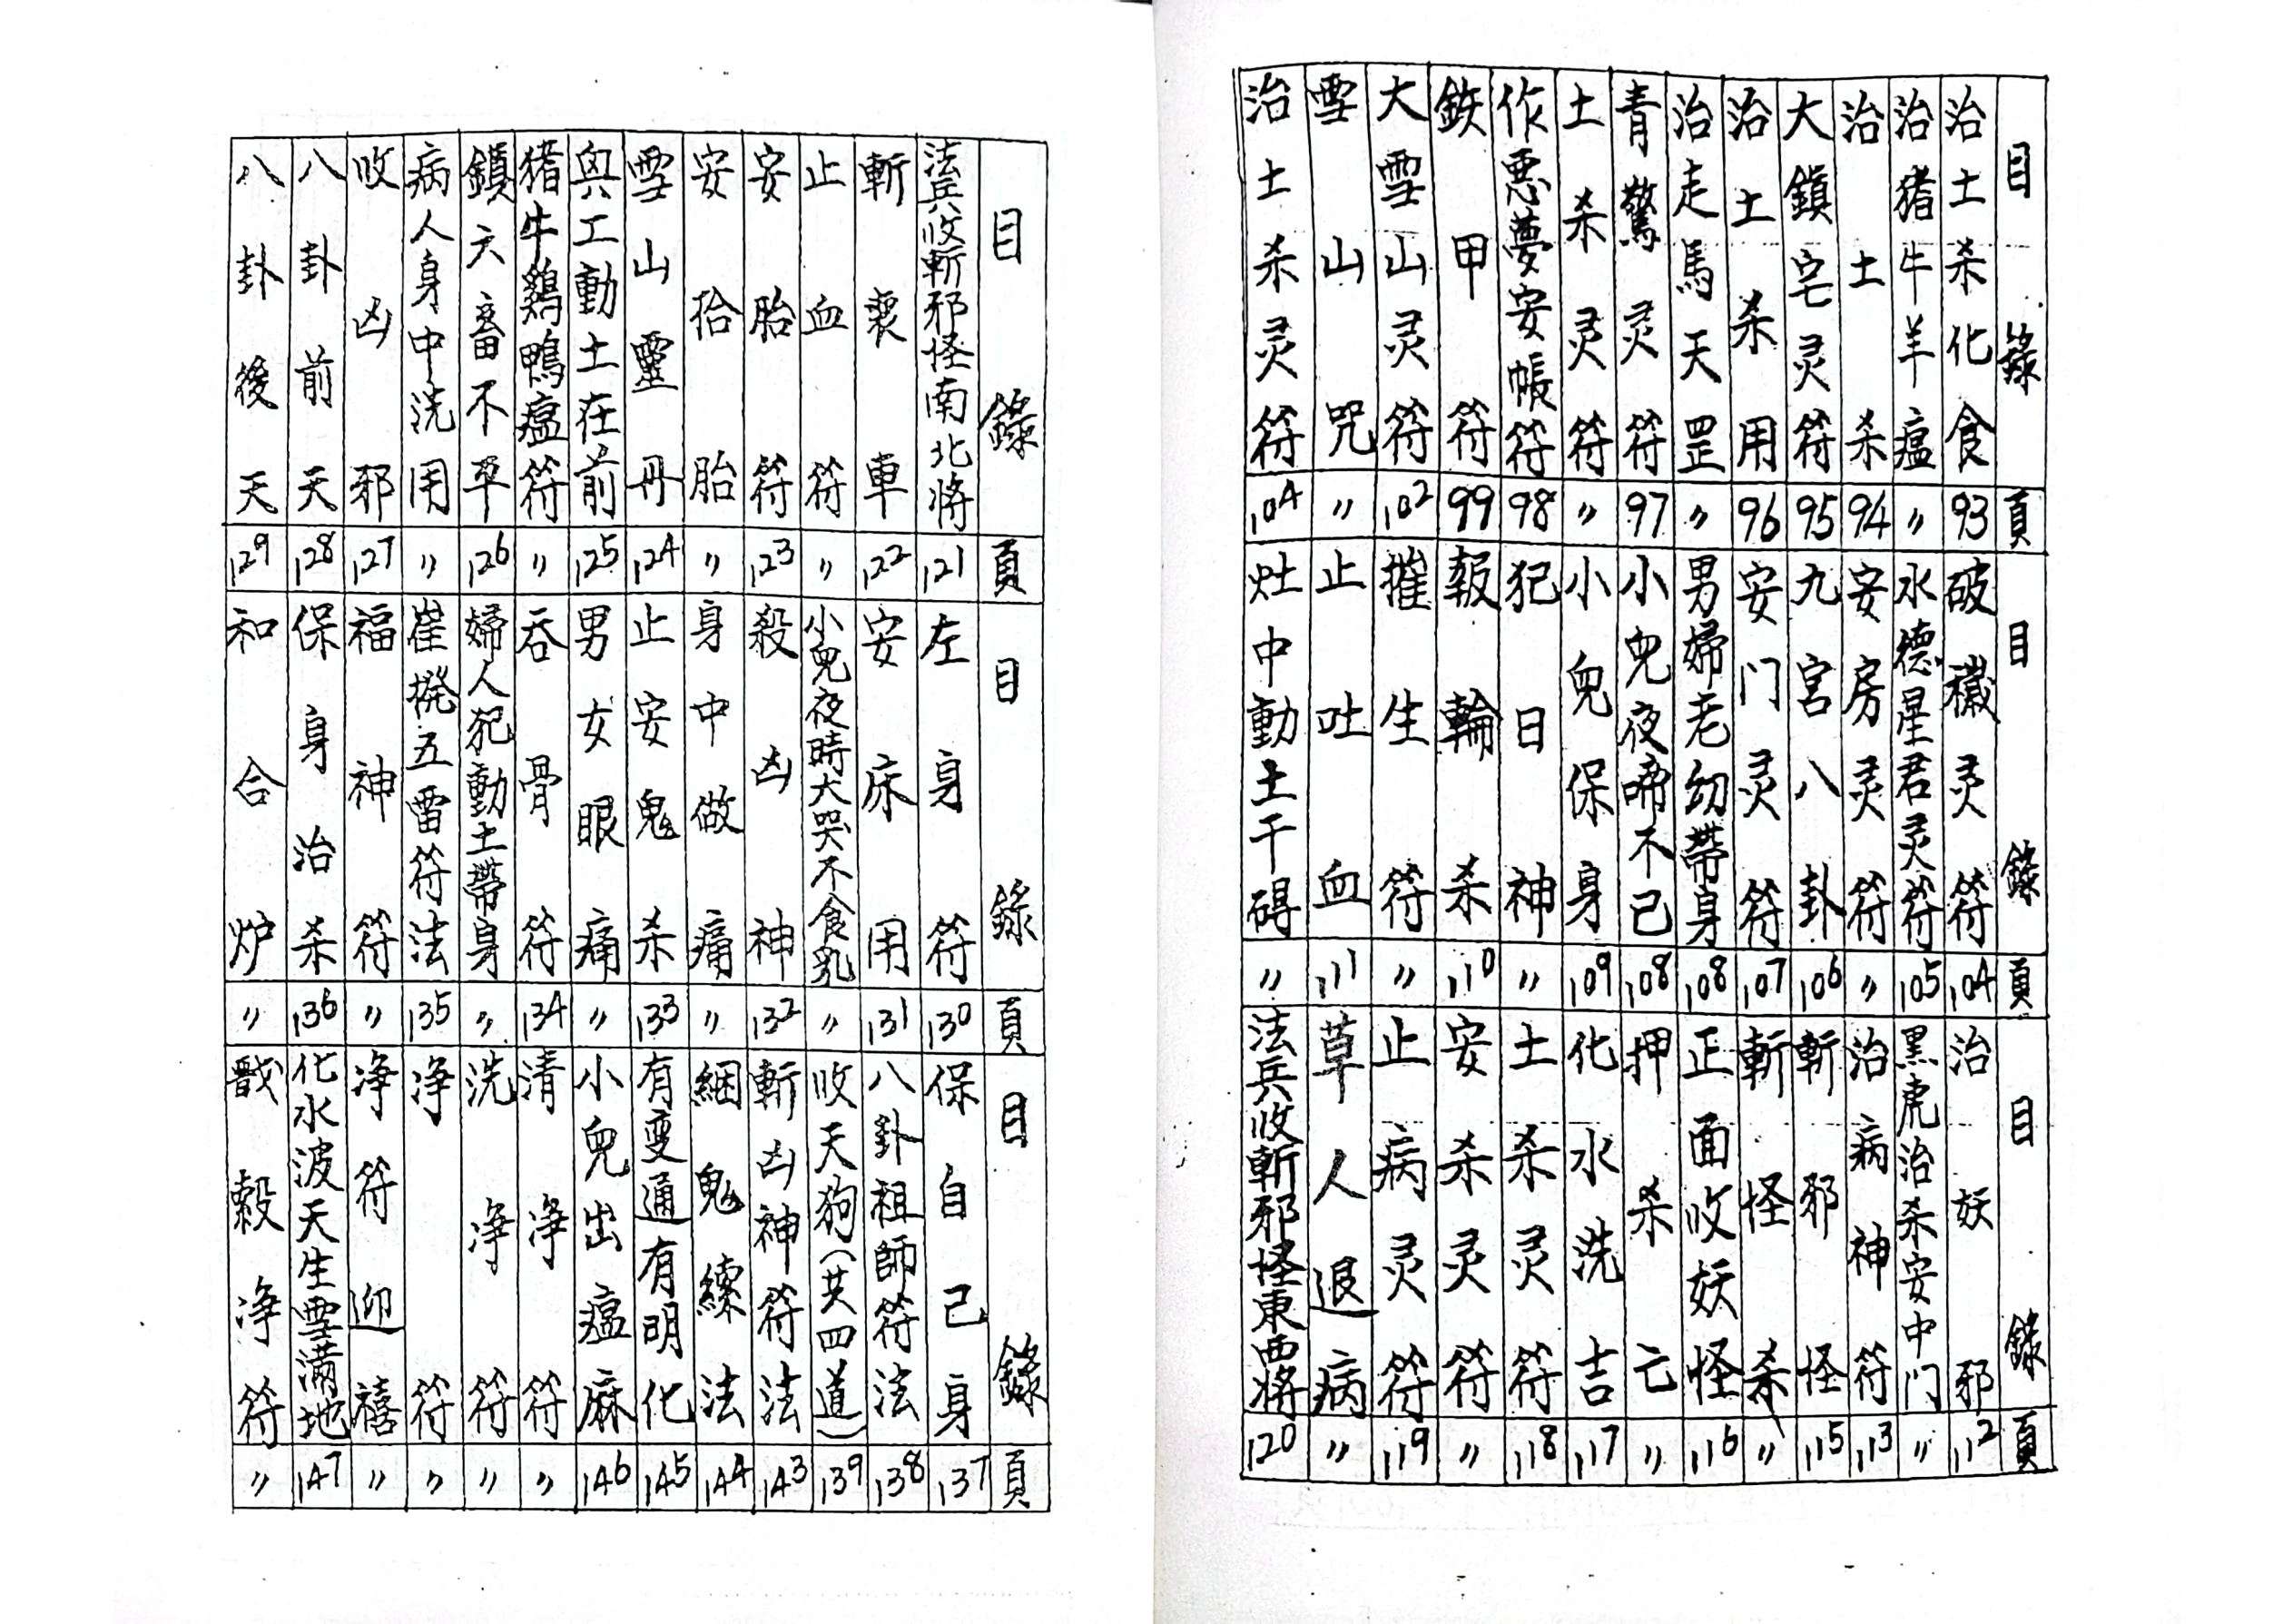 目錄 頁
治土杀化食 93
治猪牛羊瘟 〃
治土杀 94
大鎮宅灵符 95
治土杀用 96
治走馬天罡 〃
青驚灵符 97
土杀灵符 〃
作悪夢安帳符 98
鉄甲符 99
大雪山灵符 102
雪山咒 〃
治土杀灵符 104
目錄 頁
破穢灵符 104
水德星君灵符 105
安房灵符 〃
九宮八卦 106
安门灵符 107
男婦老幼帶身 108
小兒夜啼不己 108
小兒保身 109
犯日神 〃
報輪杀 110
摧生符 〃
止吐血 111
灶中動土干碍 〃
目錄 頁
治妖邪 112
黑虎治杀安中门 〃
治病神符 113
斬邪怪 115
斬怪杀 〃
正面收妖怪 116
押杀亡 〃
化水洗吉 117
土杀灵符 118
安杀灵符 〃
止病灵符 119
草人退病 〃
法兵收斬邪怪東西將 120
目錄 頁
法兵收斬邪怪南北將 121
斬喪車 122
止血符 〃
安胎符 123
安胎 〃
雪山靈丹 124
與工動土在前 125
猪牛鷄鴨瘟符 〃
鎮六畜不平 126
病人身中洗用 〃
收凶邪 127
八卦前天 128
八卦後天 129
目錄 頁
左身符 130
安床用 131
小兒夜時大哭不食乳 〃
殺凶神 132
身中做痛 〃
止安鬼杀 133
男女眼痛 〃
吞骨符 134
婦人犯動土帶身 〃
崔撥五雷符法 135
福神符 〃
保身治杀 136
和合炉 〃
目錄 頁
保自己身 137
八卦祖師符法 138
收天狗(共四道) 139
斬凶神符法 143
綑鬼縲法 144
有变通有明化 145
小兒出瘟麻 146
清净符 〃
洗净符 〃
净符 〃
净符迎禧 〃
化水波天生雪滿地 147
戬穀净符 〃